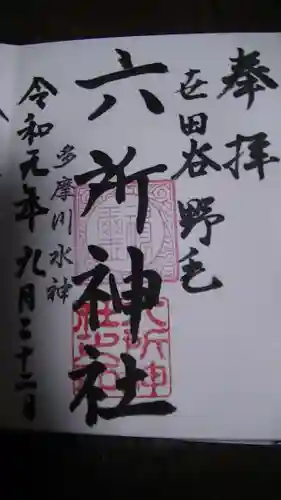 奉拝
世田谷野毛
六所神社
多摩川水神
令和元年九月二十二日